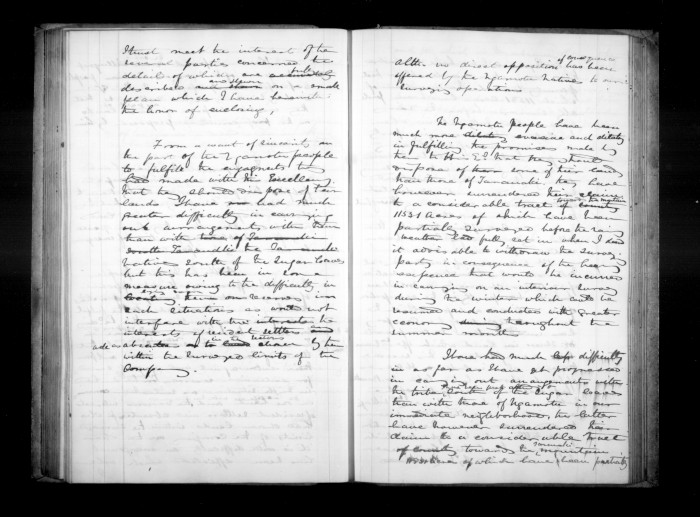 I trust meet the interest of the
several parties concerned the
detail of which are
described on a small
plan which I have
the honor of enclosing,
From a want of sincerity on
the part of the Ngamotu people
to fulfil the engagements they
had made with His Excellency
that he should dispose of their
lands I have had much
greater difficulty in carrying
out arrangements with them
than with
Natives south of the Sugar Loaves
but this has been in some
measure owing to the difficulty in
reserves in
such situations as would not
interfere with the interests the
interests of resident settlers and
absentees
within the surveyed limits of the
Company.
altho no direct opposition has been
offered by the Ngamotu Natives to our
surveying operations
The Ngamotu People have been
much more evasive and dilatory
in fulfilling the promises made by
them to His E. that they should
dispose of some of their lands
than those of Taranaki, they have
however surrendered their claims
to a considerable tract of country
1153.1 Acres of which have been
partially surveyed before the rainy
weather had fully set in when I deemed
it advisable to withdraw the survey
party in consequence of the heavy
expences that would be incurred
in carrying on an interior survey
during the winter which could be
resumed and conducted with greater
economy during throughout the
summer months
I have had much difficulty
in as far as I have yet progressed
in carrying out arrangements with
the tribes south of the Sugar loaves
than with those of Ngamotu in our
immediate neighborhood, the latter
have however surrendered their
claim to a considerable tract
of country towards the mountain
of which have been partially